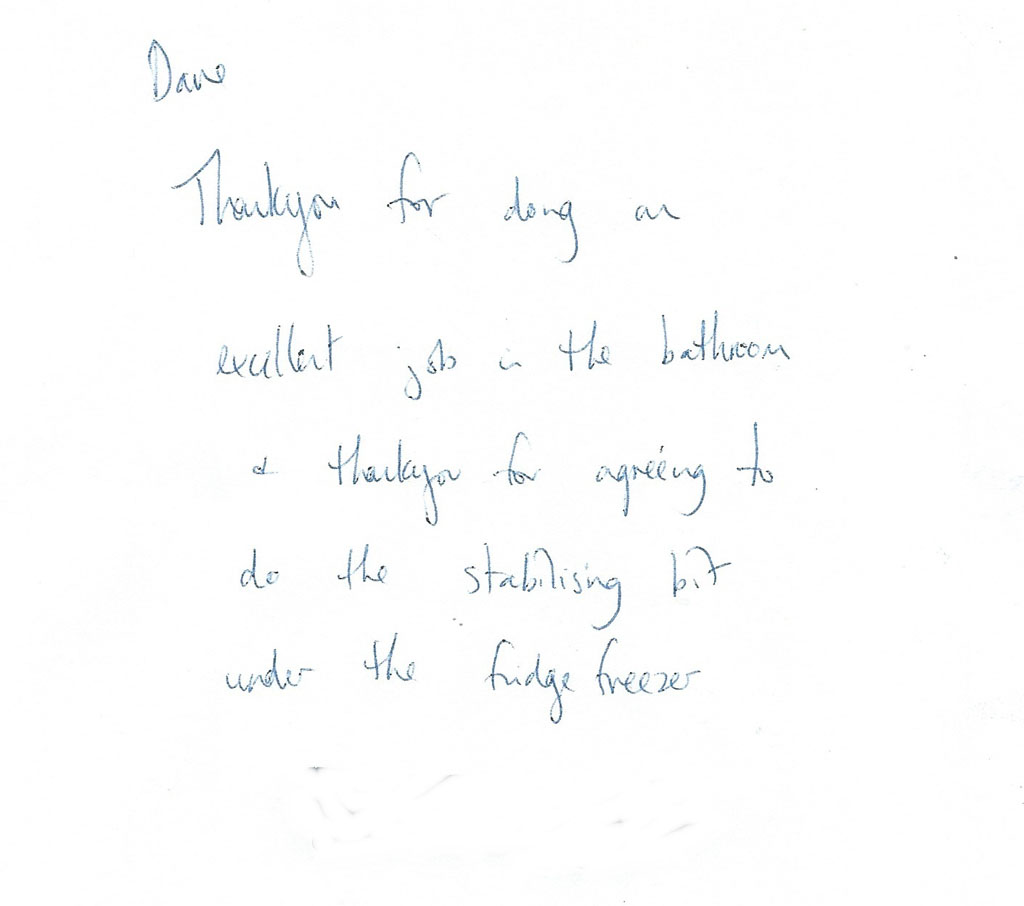 Dave
Thankyou for doing an
excellent job in the bathroom
& thankyou for agreeing to
do the stabilising bit
under the fridge freezer